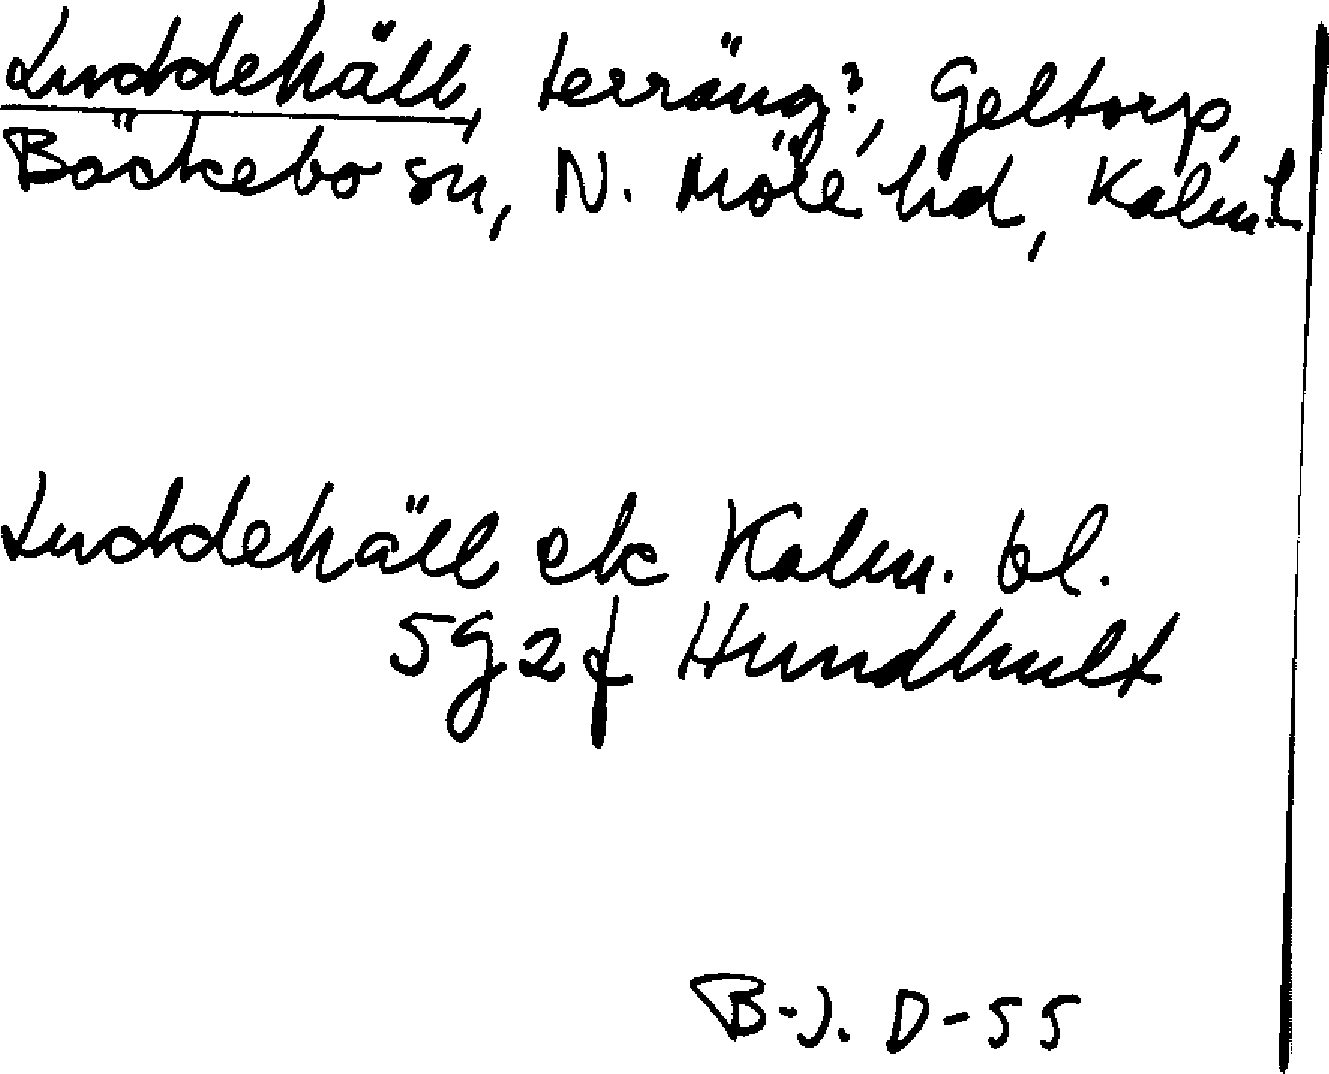 Luddehäll, terräng?, Geltorp,
Bäckebo sn, N. Möre hd, Kalm. L
Luddehäll ek Kalm. bl.
5g2f Hundhult
B-J. D-55